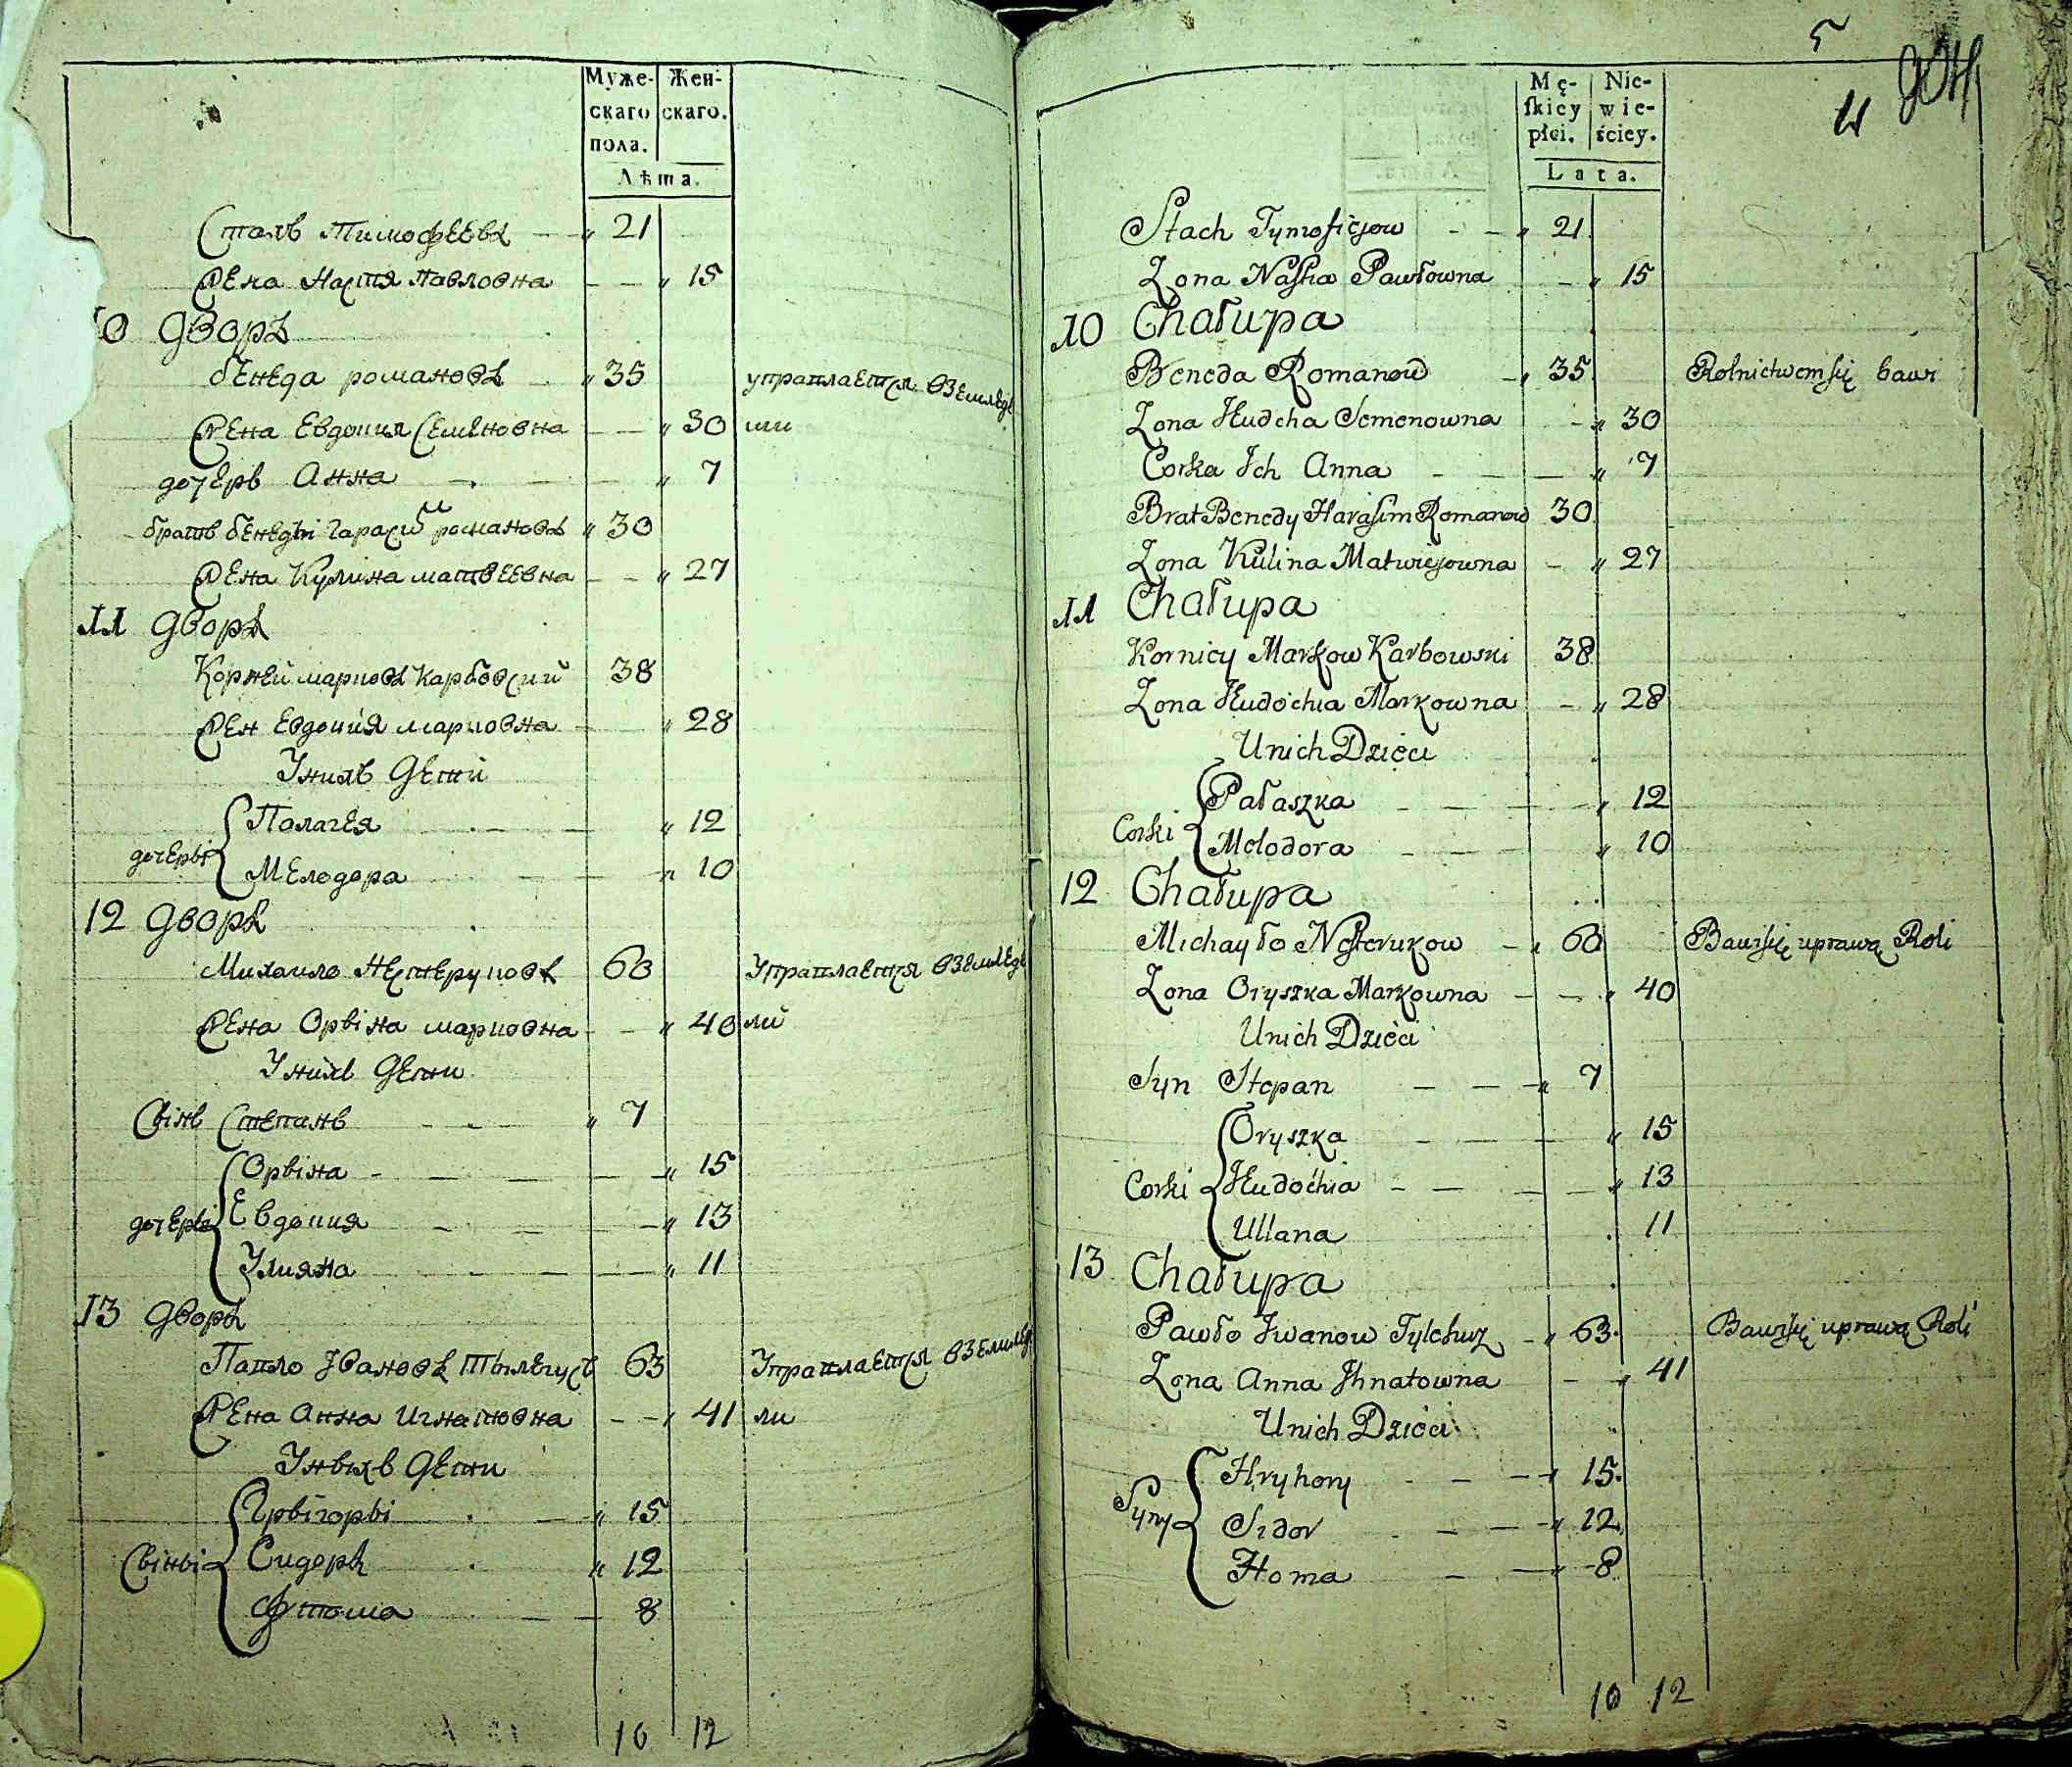 Муже- Жен-
скаго скаго.
пола.
Лѣта.
Стахъ Тимофеевъ 21
Жена Настя Павловна 15
10 Дворъ
Бенеда Романовъ 35 упражняется вземледе
Жена Евдокия Семеновна 30
дочеръ Анна 7
братъ Бенеды Гарасим Романовъ 30
Жена Кулина Матвеевна 27
11 Дворъ
Корней Марковъ Карбовский 38
Жен Евдокия Марковна 28
У нихъ Дети
Палагея 12
дочеры
Мелодора 10
12 Дворъ
Михаило Нестеруковъ 60 Упражняется вземледе
Жена Орына Марковна 40 лий
У нихъ Дети
Сынъ Степанъ 7
Орына 15
дочеры Евдокия 13
Улияна 11
13 Дворъ
Павло Ивановъ 63 Упражняется вземлед
Жена Анна Игнатовна 41 ли
У ныхъ Дети
Грыгоры 15
Сыны Сидоръ 12
Фтома 8
10 12
5
Mę- Nie-
skiey wie-
płci. ściey.
Lata.
Stach Tymofiejow 21
Żona Nastia Pawłowna 15
10 Chałupa
Beneda Romanow 35 Rolnictwem się bawi
Żona Hudcha Semenowna 30
Corka Ich Anna 7
Brat Benedy Harasim Romanow 30
Żona Kulina Matwiejowna 27
11 Chałupa
Korniey Markow Karbowski 38
Żona Hudochia Markowna 28
U nich Dzieci
Pałaszka 12
Corki
Melodora 10
12 Chałupa
Michayło Nesterukow 60 Bawi się uprawą Roli
Żona Oryszka Markowna 40
U nich Dzieci
Syn Stepan 7
Oryszka 15
Corki Hudochia 13
Ullana 11
13 Chałupa
Pawło Iwanow 63 Bawi się uprawą Roli
Żona Anna Ihnatowna 41
U nich Dzieci
Hryhory 15
Syny Sidor 12
Homa 8
10 12